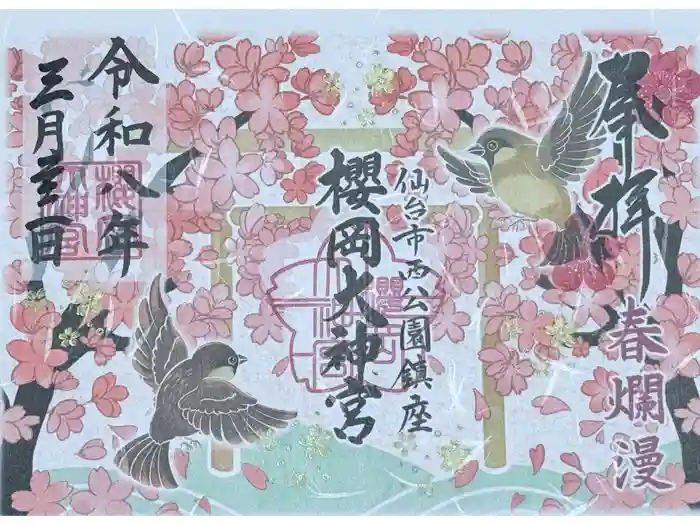 奉拝
春爛漫
仙台市西公園鎮座
櫻岡大神宮
令和八年
三月 日